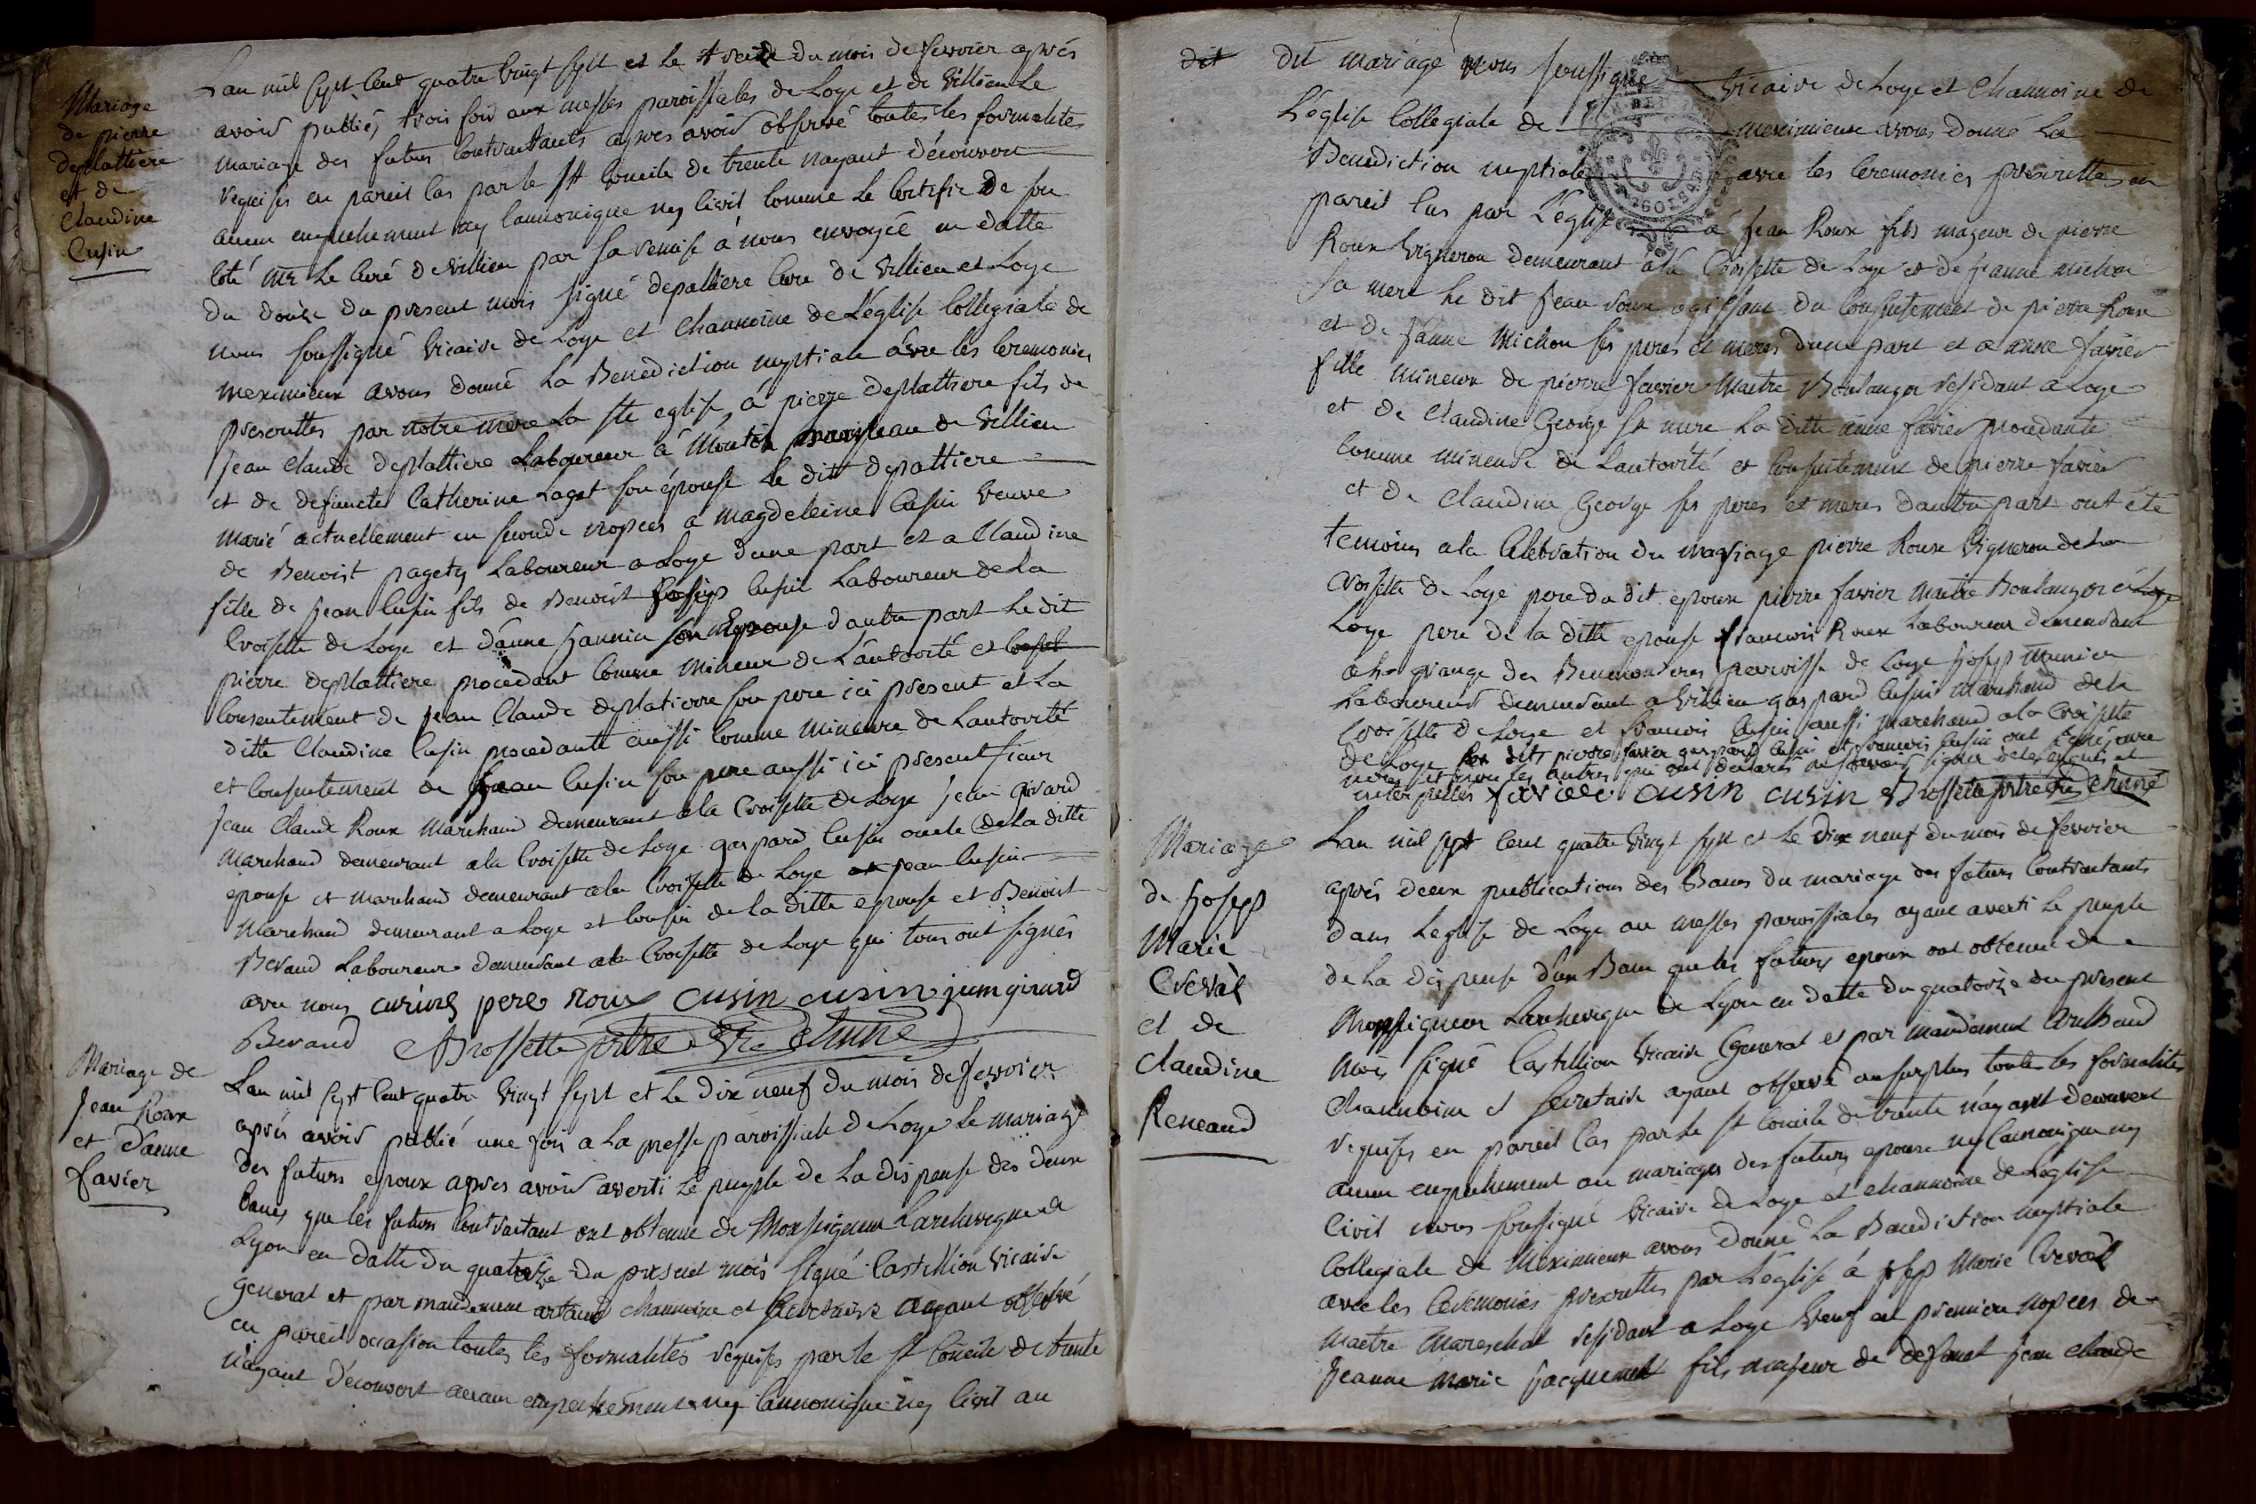 Mariage
de pierre
deplattière
et de
Claudine
Cusin
Lan mil sept Cent quatre vingt sept et le treize du mois de fevrier aprés
avoir publiés trois fois aux messes paroissiales de Loye et de villieu Le
mariage des futurs Contractants apres avoir observé toutes les formalités
requises en pareil Cas par le st Concile de trente nayant découvert
aucun empechement ny Cannonique ny Civil Comme Le Certifie de son
Coté mr Le Curé de villieu par sa remise à nous envoyée en datte
du douze du present mois signé depattiere Curé de villieu et Loye
nous soussigné vicaire de Loye et Channoine de L'église Collegiale de
meximieux avons donné La Benediction nuptiale avec les Ceremonies
prescrittes par notre mere La ste eglise, à pierre deplattiere fils de
jean Claude deplattiere Laboureur à Monton hameau de villieu
et de defuncte Catherine Laget son épouse Le dit depattiere
marié actuellement en seconde nopces a magdeleine Cusin veuve
de Benoist pagety Laboureur a Loye dune part et a Claudine
fille de jean Cusin fils de Benoist joseph Cusin Laboureur de La
Croisette de Loye et d'anne jannin son Epouse d'autre part Le dit
pierre deplattiere procedant Comme Mineur de L'autorité et Consent
Consentement de jean Claude deplatierre son pere ici present et La
ditte Claudine Cusin procedante aussi Comme mineure de Lautorité
et Consentement de jean Cusin son pere aussi ici present sieur
jean Claude Roux Marchand demeurant a la Croisette de Loye jean girard
marchand demeurant a la Croisette de Loye gaspard Cusin oncle de La ditte
epouse et marchand demeurant a la Croisette de Loye et jean Cusin
Marchand demeurant a Loye et Cousin de la ditte epouse et Benoist
Beraud Laboureur demeurant a la Croisette de Loye qui tous ont signés
avec nous cusin pere roux cusin cusin jean girard
Beraud Brossette ptre vic channe
Mariage de
Jean Roux
et d'anne
favier
Lan mil sept Cent quatre vingt sept et Le dix neuf du mois de fevrier
aprés avoir publié une fois a La messe paroissiale de Loye Le mariage
des futurs epoux apres avoir averti Le peuple de La dispense des deux
bans que les futurs Contractant ont obtenue de Monseigneur L'archeveque de
Lyon en datte du quatorze du present mois signé Castillion vicaire
general et par mandement artaud channoine et secretaire ayant observé
en pareil occasion toutes les formalités requises par le st Concile de trente
n'ayant découvert aucun empechement ny Cannonique ny Civil au
dit dit mariage nous soussigné vicaire de Loye et Channoine de
L'église Collegiale de meximieux avons donné La
Benediction nuptiale avec les Ceremonies prescrittes en
pareil Cas par L'église à jean Roux fils majeur de pierre
Roux vigneron demeurant à la Croisette de Loye et de jeanne michon
sa mere Le dit jean roux agissant du Consentement de pierre Roux
et de janne Michon ses peres et meres d'une part et a anne favier
fille mineure de pierre favier Maitre Boulanger residant a Loye
et de Claudine George sa mere La ditte anne favier procedante
Comme mineure de Lautorité et Consentement de pierre favier
et de Claudine George ses peres et meres dautre part ont été
temoins a la Celebration du mariage pierre Roux vigneron de la
Croisette de Loye pere du dit epoux pierre favier maitre Boulanger à Loye
Loye pere de la ditte epouse francois Roux Laboureur demeurant
a la grange des Beumonderes paroisse de Loye joseph Munier
Laboureur demeurant a villieu gaspard Cusin Marchand de la
Croisette de Loye et francois Cusin aussi marchand a la Croisette
de Loye Les dits pierre favier gaspard Cusin et francois Cusin ont signé avec
nous et non les autres qui ont declarés ne savoir signer de ce enquis et
interpellés favier cusin cusin Brossette ptre vic channe
Mariage
de joseph
Marie
Creval
et de
Claudine
Reneaud
Lan mil sept Cent quatre vingt sept et Le dix neuf du mois de fevrier
aprés deux publications des Bans du mariage des futurs Contractants
dans L'eglise de Loye au messes paroissiales ayant averti Le peuple
de La dispense d'un Ban que les futurs epoux ont obtenue de
Monseigneur L'archeveque de Lyon en datte du quatorze du present
mois signé Castillion vicaire General et par mandement arthaud
channoine et secretaire ayant observé au surplus toutes les formalités
requises en pareil Cas par Le st Concile de trente n'ayant decouvert
aucun empechement au mariages des futurs epoux ny Cannonique ny
Civil nous soussigné vicaire de Loye et channoine de L'église
Collegiale de Meximieux avons donné La Benediction nuptiale
avec les Ceremonies prescrittes par L'église à joseph Marie Creval
maitre Mareschal residant a Loye veuf en premiere nopces de
jeanne marie jacquemet fils majeur de defunt jean Claude